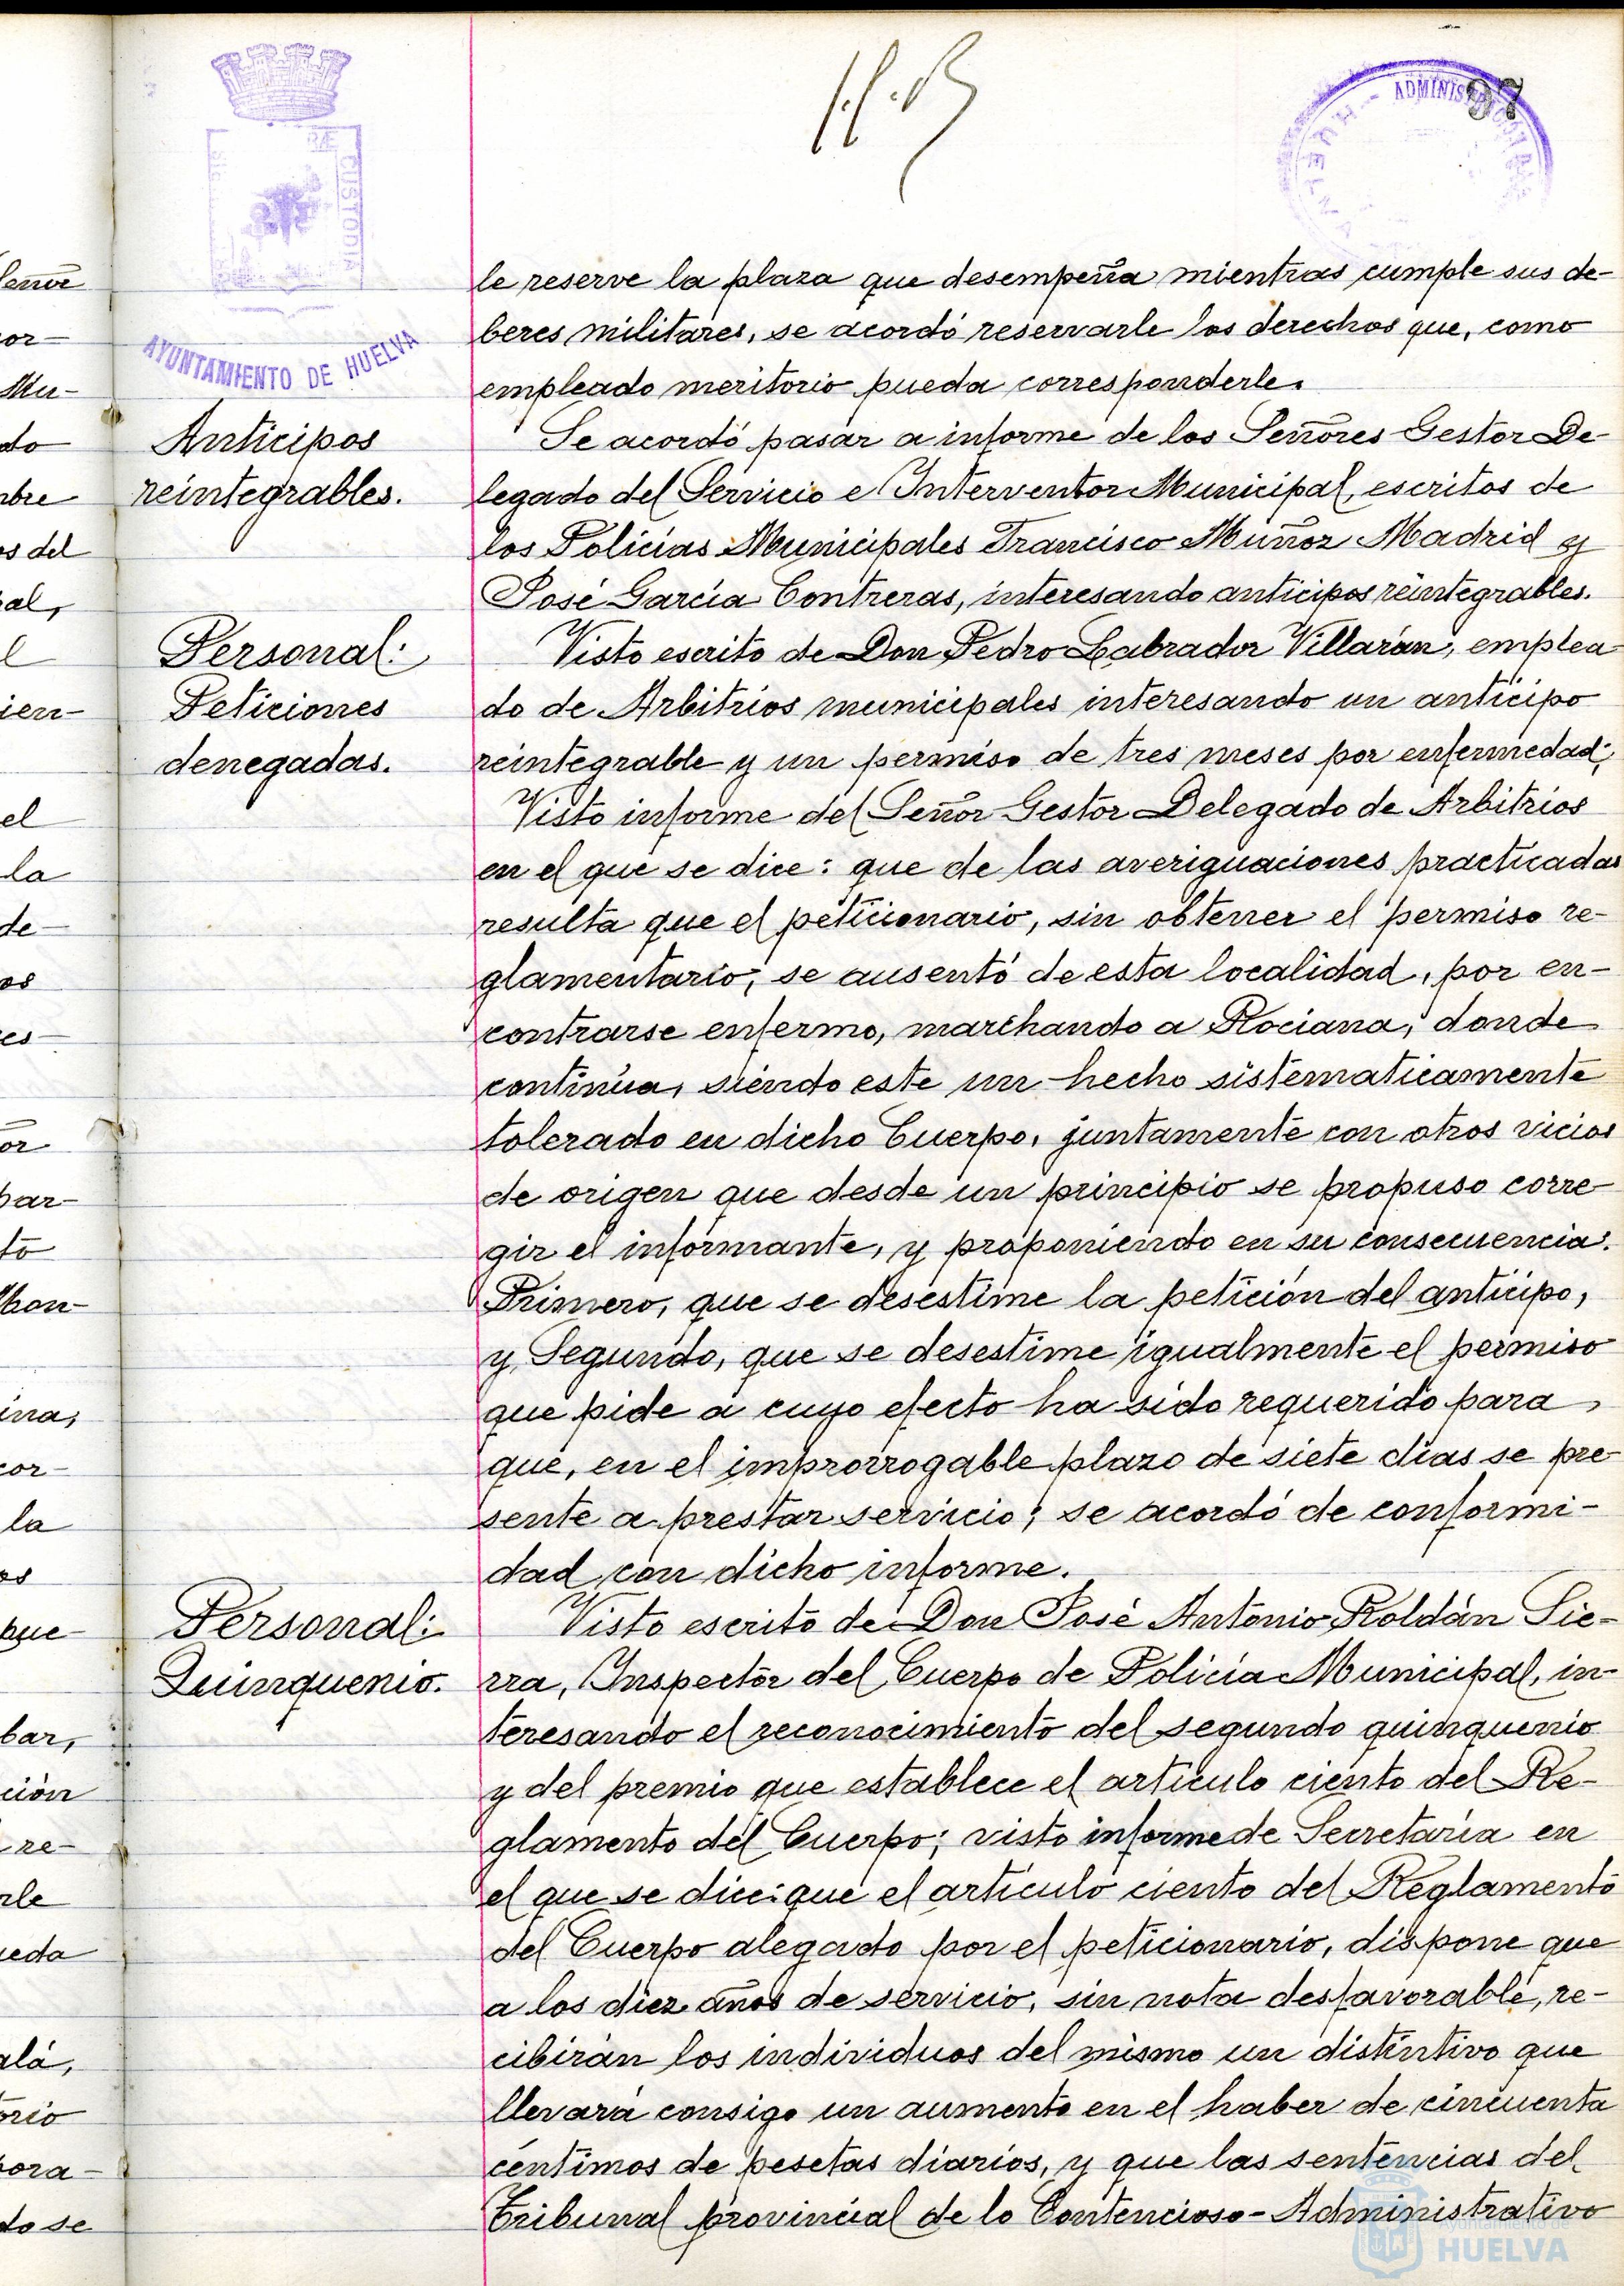 97
ADMINIS
HUELVA
CUSTODIA
AYUNTAMIENTO DE HUELVA
le reserve la plaza que desempeña mientras cumple sus de-
beres militares, se acordó reservarle los derechos que, como
empleado meritorio pueda corresponderle.
Anticipos
reintegrables.
Se acordó pasar a informe de los Señores Gestor De-
legado del Servicio e Interventor Municipal, escritos de
los Policías Municipales Francisco Muñoz Madrid y
José García Contreras, interesando anticipos reintegrables.
Personal:
Peticiones
denegadas.
Visto escrito de Don Pedro Labrador Villarán, emplea-
do de Arbitrios municipales interesando un anticipo
reintegrable y un permiso de tres meses por enfermedad;
Visto informe del Señor Gestor Delegado de Arbitrios
en el que se dice: que de las averiguaciones practicadas
resulta que el peticionario, sin obtener el permiso re-
glamentario, se ausentó de esta localidad, por en-
contrarse enfermo, marchando a Rociana, donde
continúa, siendo este un hecho sistematicamente
tolerado en dicho Cuerpo, juntamente con otros vicios
de origen que desde un principio se propuso corre-
gir el informante, y proponiendo en su consecuencia:
Primero, que se desestime la petición del anticipo,
y Segundo, que se desestime igualmente el permiso
que pide a cuyo efecto ha sido requerido para
que, en el improrrogable plazo de siete días se pre-
sente a prestar servicio; se acordó de conformi-
dad con dicho informe.
Personal:
Quinquenio.
Visto escrito de Don José Antonio Roldán Sie-
rra, Inspector del Cuerpo de Policía Municipal, in-
teresando el reconocimiento del segundo quinquenio
y del premio que establece el artículo ciento del Re-
glamento del Cuerpo; visto informe de Secretaría en
el que se dice: que el artículo ciento del Reglamento
del Cuerpo alegado por el peticionario, dispone que
a los diez años de servicio, sin nota desfavorable, re-
cibirán los individuos del mismo un distintivo que
llevará consigo un aumento en el haber de cincuenta
céntimos de pesetas diarios, y que las sentencias del
Tribunal provincial de lo Contencioso-Administrativo
Ayuntamiento de
HUELVA